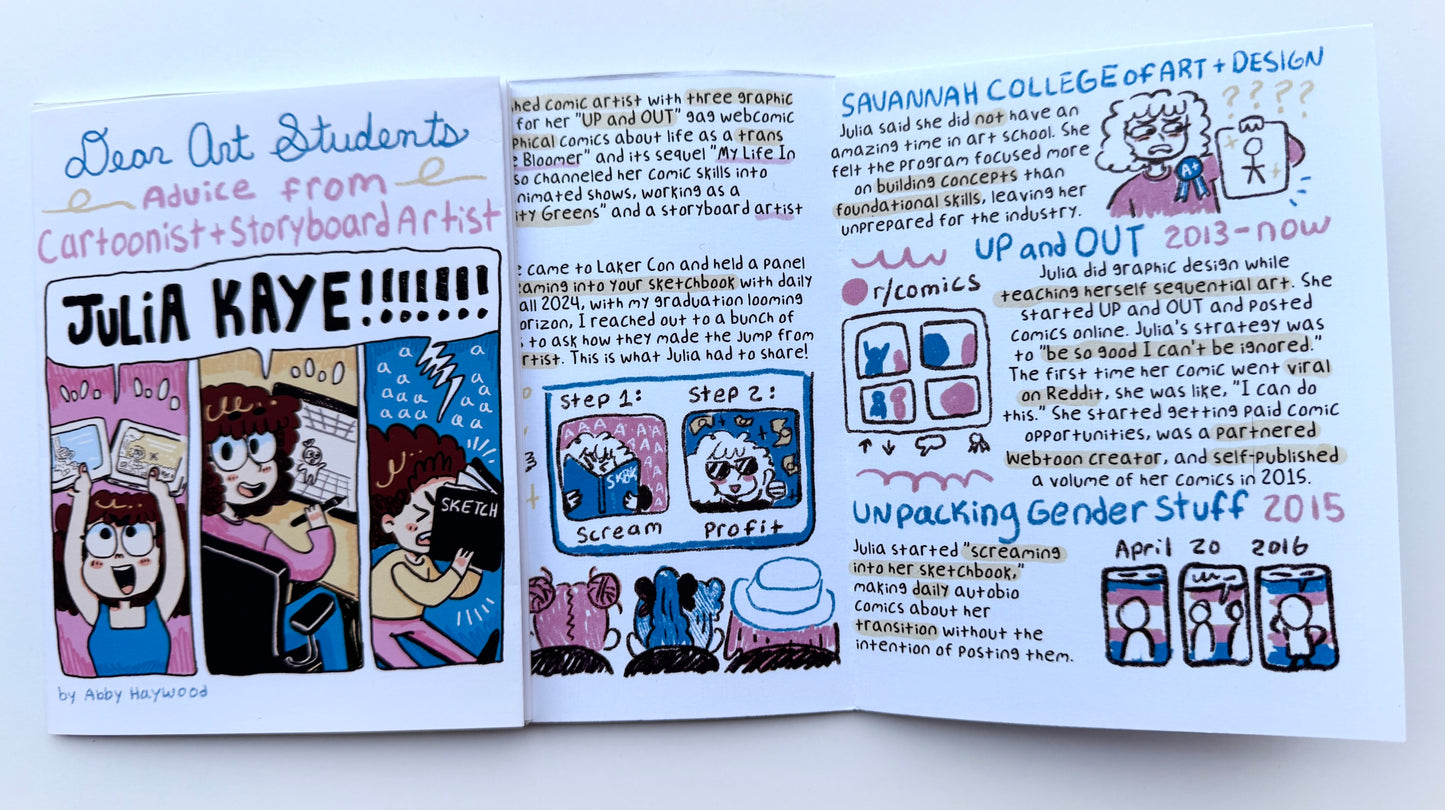 Dear Art Students
Advice from
Cartoonist + Storyboard Artist
JULIA KAYE!!!!!!!
a
a a
a a a
a a a
a a a a
a
a
a
a a
SKETCH
by Abby Haywood
hed comic artist with three graphic
for her "UP and OUT" gag webcomic
phical comics about life as a trans
e Bloomer" and its sequel "My Life In
so channeled her comic skills into
nimated shows, working as a
ity Greens" and a storyboard artist
e came to Laker Con and held a panel
eaming into your sketchbook with daily
all 2024, with my graduation looming
orizon, I reached out to a bunch of
s to ask how they made the jump from
rtist. This is what Julia had to share!
Step 1:
Step 2:
SKBK
Scream
Profit
SAVANNAH COLLEGE of ART + DESIGN
Julia said she did not have an
amazing time in art school. She
felt the program focused more
on building concepts than
foundational skills, leaving her
unprepared for the industry.
? ? ? ?
A+
UP and OUT 2013-now
r/comics
Julia did graphic design while
teaching herself sequential art. She
started UP and OUT and posted
comics online. Julia's strategy was
to "be so good I can't be ignored."
The first time her comic went viral
on Reddit, she was like, "I can do
this." She started getting paid comic
opportunities, was a partnered
Webtoon creator, and self-published
a volume of her comics in 2015.
Unpacking Gender Stuff 2015
Julia started "screaming
into her sketchbook,"
making daily autobio
comics about her
transition without the
intention of posting them.
April 20 2016